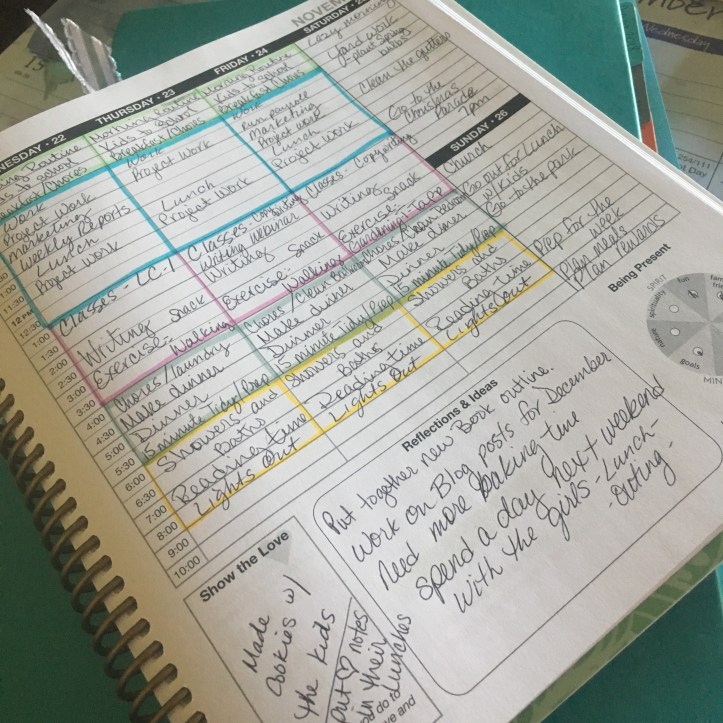 NOVE
NESDAY • 22
Routine
to school
Chores
Work
Project Work
marketing
Weekly Reports
Lunch
Project Work
Classes - LC-1
Writing
Snack
Exercise - Walking
Chores/laundry
Make dinner
Dinner
15 minute Tidy/Prep
Showers and
Baths
Reading time
Lights Out
THURSDAY • 23
Morning Routine
Kids to School
Breakfast/Chores
Work
Project Work
Lunch
Project Work
Classes -
writing webinar
Writing
Snack
Exercise - Walking
Chores/Clean
Make dinner
Dinner
15 minute Tidy/Prep
Showers and
Baths
Reading time
Lights Out
FRIDAY • 24
Morning Routine
Kids to School
Breakfast/Chores
Work
Run payroll
Marketing
Project
Lunch
Project Work
Classes - Copywriting
Writing
Snack
Exercise -
Chores/Clean
Make Dinner
Dinner
15 minute Tidy/Prep
Showers and
Baths
Reading Time
Lights Out
SATURDAY • 25
Lazy morning
Yard work
- plant spring
bulbs
Clean the gutters
Go to the
Christmas
Parade
7pm
SUNDAY • 26
Church
Go out for Lunch
w/ Kids
Go to the park
Prep for the
week
Plan meals
Plan rewards
11:30
12 PM
12:30
1:00
1:30
2:00
2:30
3:00
3:30
4:00
4:30
5:00
5:30
6:00
6:30
7:00
8:00
9:00
10:00
Being Present
SPIRIT
spirituality
fun
goals
MIN
Reflections & Ideas
Put together new Book outline.
Work on Blog posts for December
Need more baking time
Spend a day next weekend
with the girls - Lunch -
Outing -
Show the Love
Made
cookies w/
the kids
Put ♡ notes
in their
Lunches
do
ve and
Wednesday
15